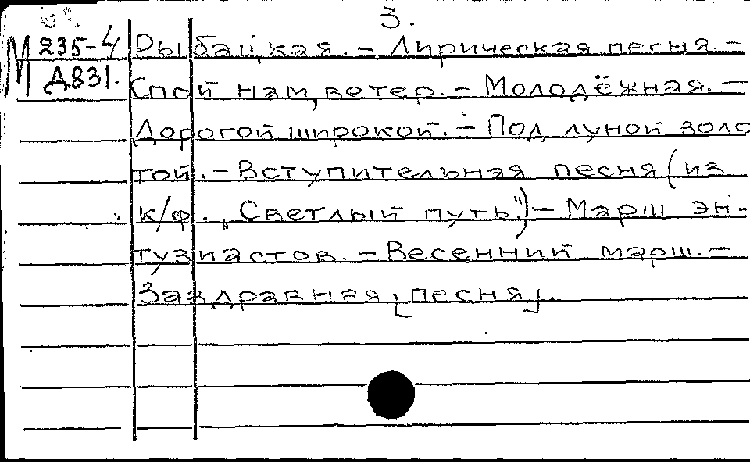 3.
М 235-4 Рыбацкая. – Лирическая песня. –
Д831. Спой нам, ветер. – Молодёжная. –
Дорогой широкой. – Под луной золо
той. – Вступительная песня (из
к/ф. „Светлый путь") – Марш эн-
тузиастов. – Весенний марш. –
Заздравная [песня].